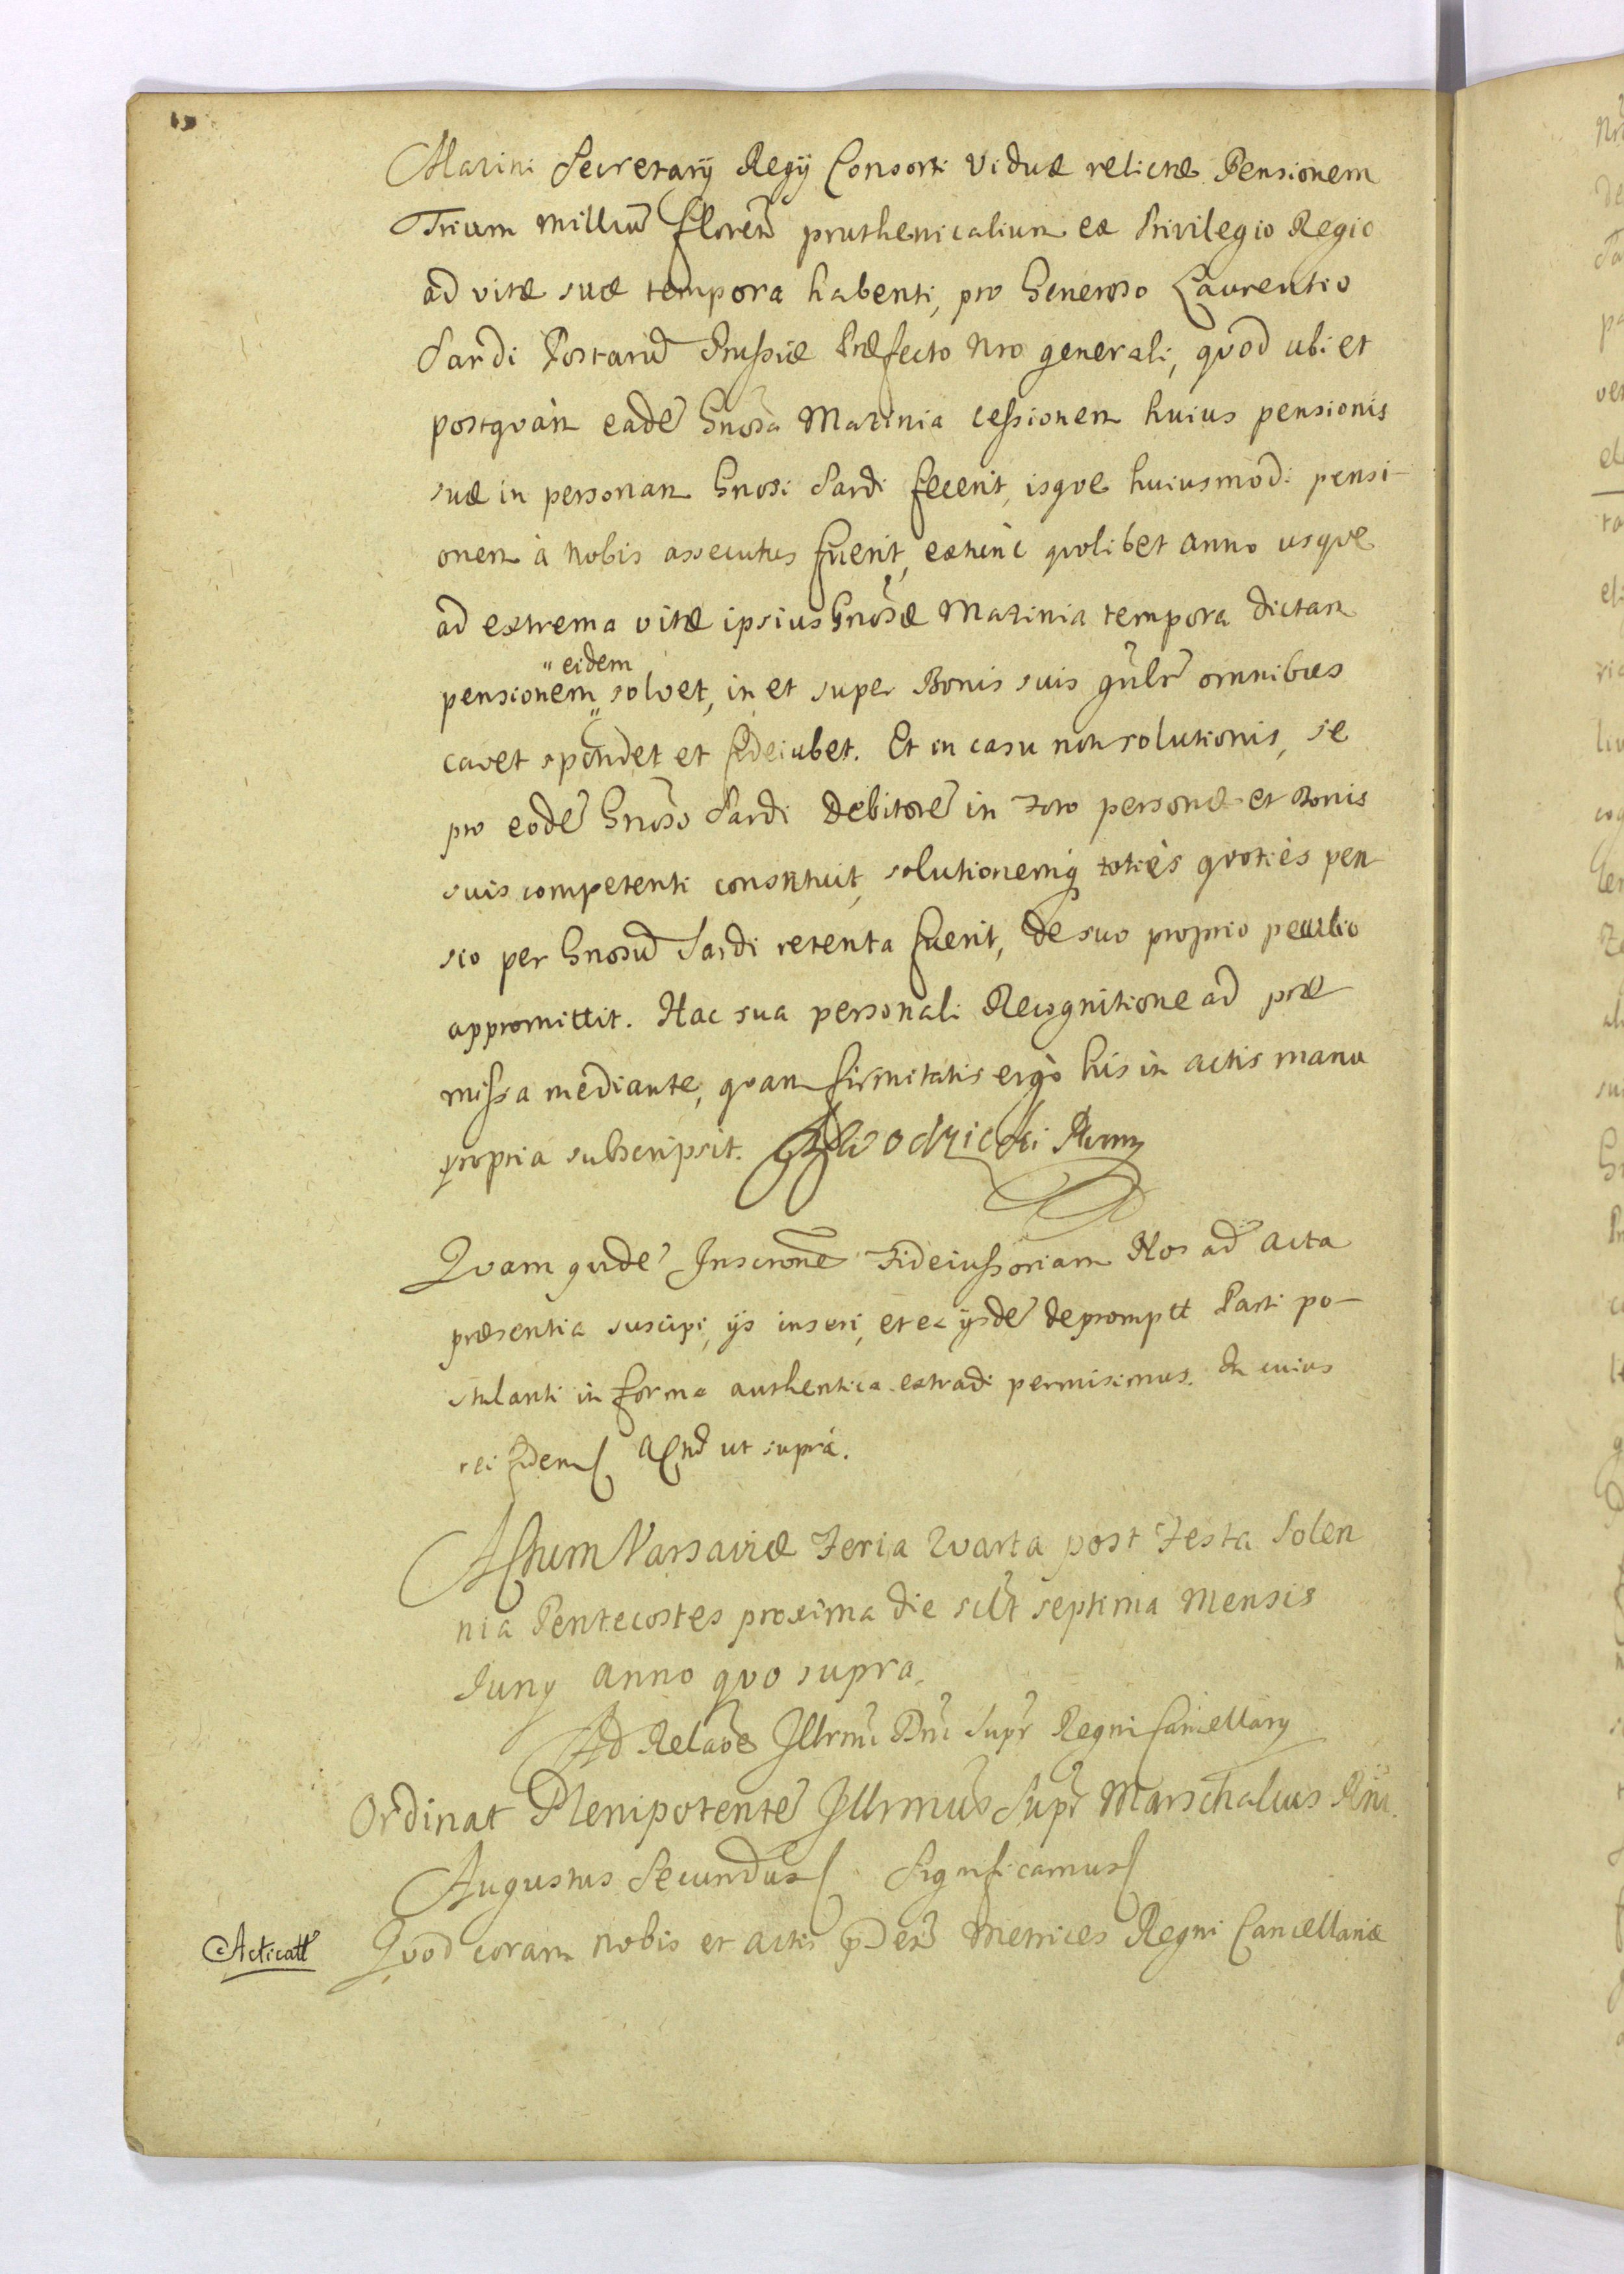 Mazini Secretarÿ Regÿ Consorti Viduæ relictæ Pensionem
Trium milliũ florenũ pruthenicalium ex Privilegio Regio
ad vitæ suæ tempora habenti, pro Generoso Laurentio
Sardi Postarũ Prussiæ Præfecto Nro generali, quod ubi et
postquàm eadẽ Gnosa Mazinia cessionem huius pensionis
suæ in personam Gnosi Sardi fecerit, isque huiusmodi pensi-
onem à Nobis assecutus fuerit, extunc quolibet anno usque
ad extrema vitæ ipsius Gnosæ Mazinia tempora dictam
pensionem „eidem„ solvet, in et super Bonis suis gñlr omnibus
cavet spondet et fideiubet. Et in casu non solutionis, se
pro eodẽ Gnoso Sardi debitorẽ in Foro personæ et Bonis
suis competenti constituit, solutionemq toties quoties pen
sio per Gnosũ Sardi retenta fuerit, de suo proprio peculio
appromittit. Hac sua personali Recognitione ad præ
missa mediante, quam firmitatis ergò his in actis manu
propria subscripsit.
Quam quidẽ Inscrõnẽ Fideiussoriam Nos ad acta
præsentia suscipi, ijs inseri, et ex ijsdẽ depromptt Parti po-
stulanti in forma authentica extradi permisimus. In cuius
rei fidem Actũ ut supra.
Actum Varsaviæ Feria Quarta post Festa Solen
nia Pentecostes proxima die scilt septima Mensis
Juny Anno quo supra.
Ad Relãõe Illrmi Dni Supr Regni Cancellary
Ordinat Plenipotentẽ Illrmus Supr Marschalcus Rni.
Augustus Secundus Significamus
Acticatt Quod coram nobis et actis Metrices Regni Cancellariæ